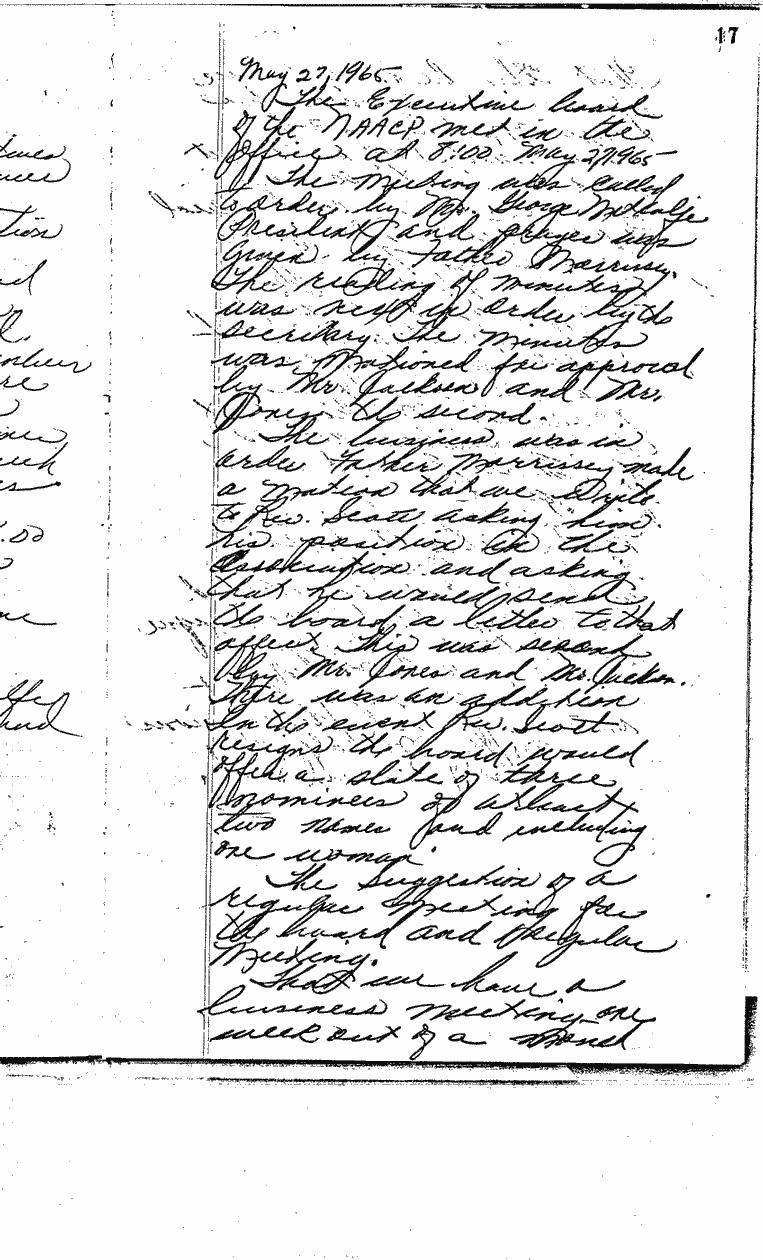 17
May 27, 1965
The Executive board
of the NAACP met in the
office at 8:00 May 27, 1965
The meeting was called
to order by Mr. George Metcalfe
President and prayer was
given by Father Morrissey.
The reading of minutes
was next in order by the
secretary. The minutes
was motioned for approval
by Mr. Jackson and Mr.
Jones the second.
The business was in
order Father Morrissey made
a motion that we write
to Rev. Scott asking him
his position in the
Association and asking
that he would send
the board a letter to that
effect. This was second
by Mr. Jones and Mr. Jackson.
There was an addition
In the event Rev. Scott
resigns the board would
offer a slate of three
nominees or atleast
two names and including
one woman.
The suggestion of a
regular meeting for
the board and regular
meeting.
That we have a
business meeting one
week out of a month